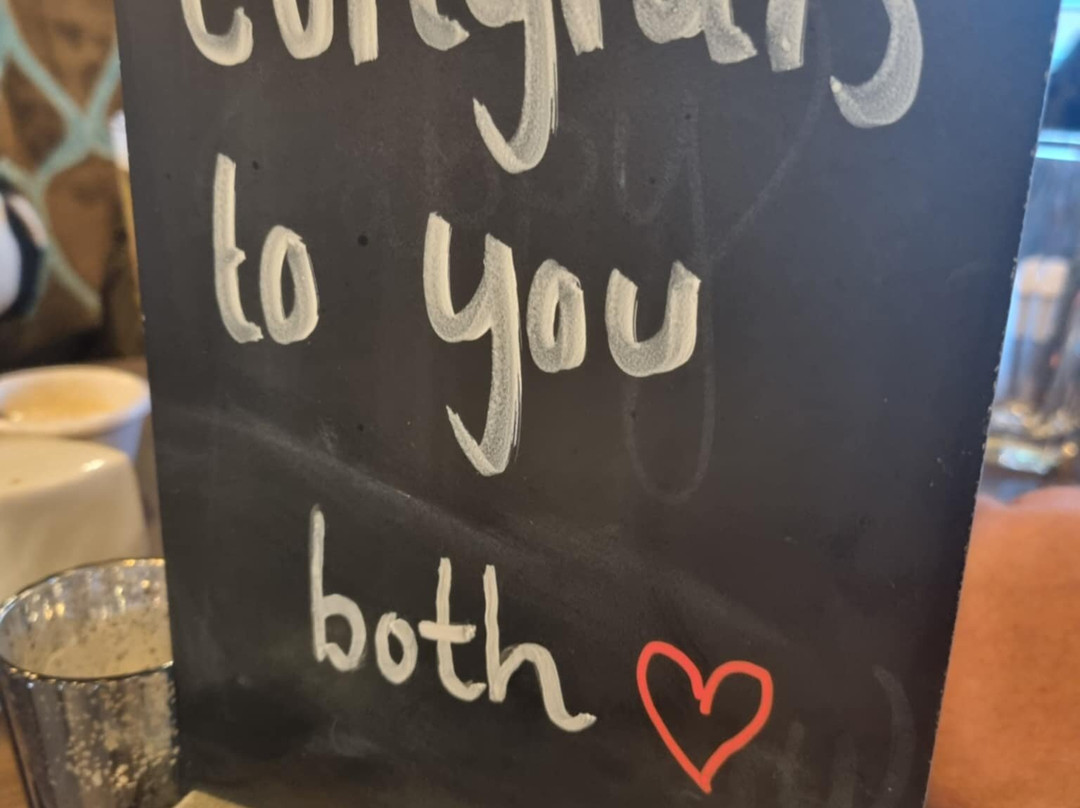 Congrats
to you
both ♡